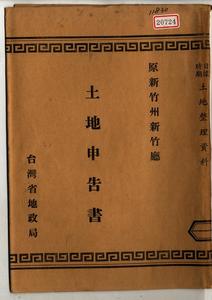 11830
20724
日據時期土地整理資料
原新竹州新竹廳
土地申告書
台灣省地政局